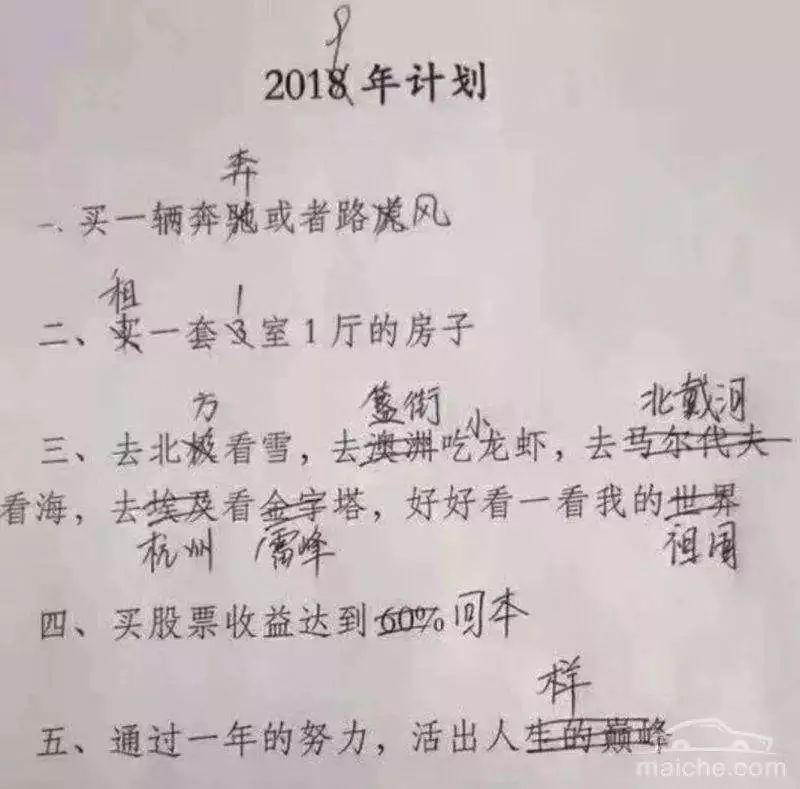 9
2018年计划
奔
一、买一辆奔驰或者路虎风
租 1
二、买一套3室1厅的房子
方 簋街 小 北戴河
三、去北极看雪，去澳洲吃龙虾，去马尔代夫
看海，去埃及看金字塔，好好看一看我的世界
杭州 雷峰 祖国
四、买股票收益达到60%回本
样
五、通过一年的努力，活出人生的巅峰
maiche.com